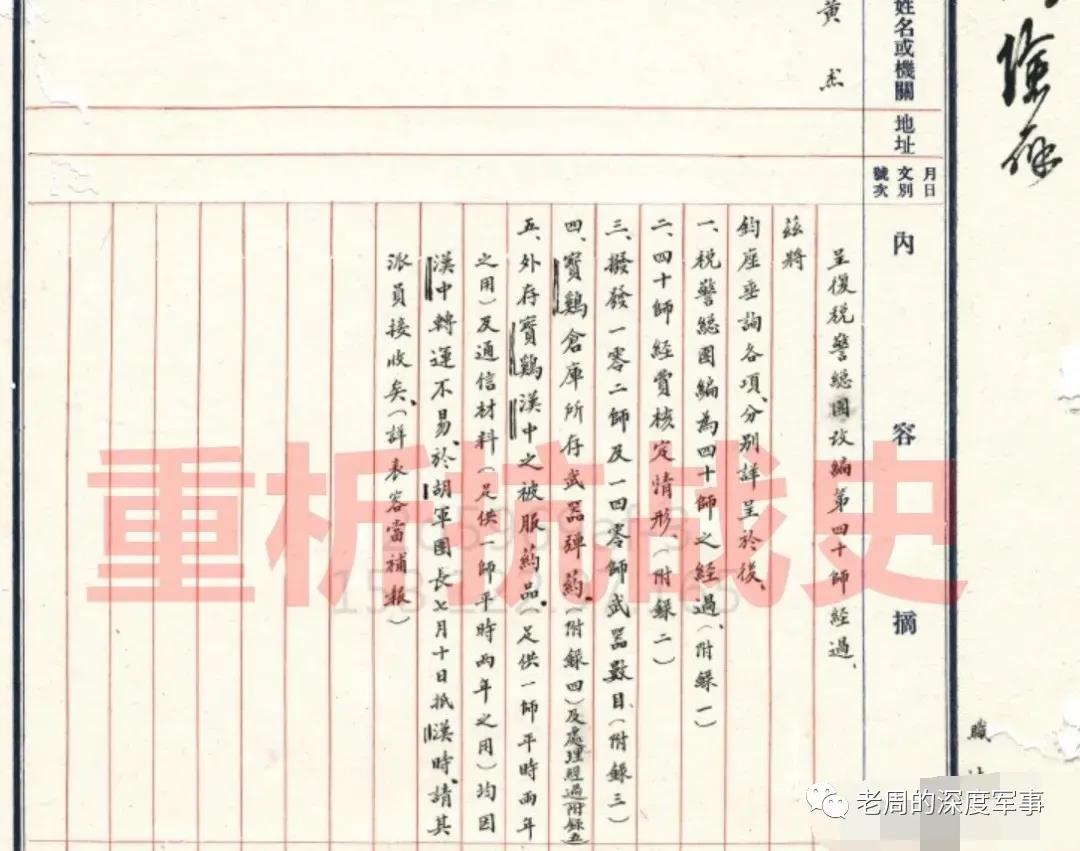 存
職
姓名或機關
黃 杰
地址
月日
文別
號次
內 容 摘
呈復稅警總團改編第四十師經過、
茲將
鈞座垂詢各項、分別詳呈於後、
一、稅警總團編為四十師之經過、(附錄一)
二、四十師經費核定情形、(附錄二)
三、撥發一零二師及一四零師武器數目、(附錄三)
四、寶鷄倉庫所存武器彈葯、(附錄四)及處理經過附錄五
五、外存寶鷄漢中之被服葯品、(足供一師平時兩年
之用)及通信材料(足供一師平時兩年之用)均因
漢中轉運不易、於胡軍團長七月十日抵漢時、請其
派員接收矣、(詳表容當補報)
重析抗战史
老周的深度军事